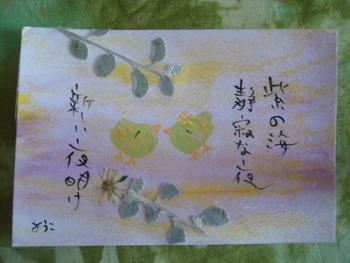 紫の海
静寂な夜
新しい夜明け
ようこ